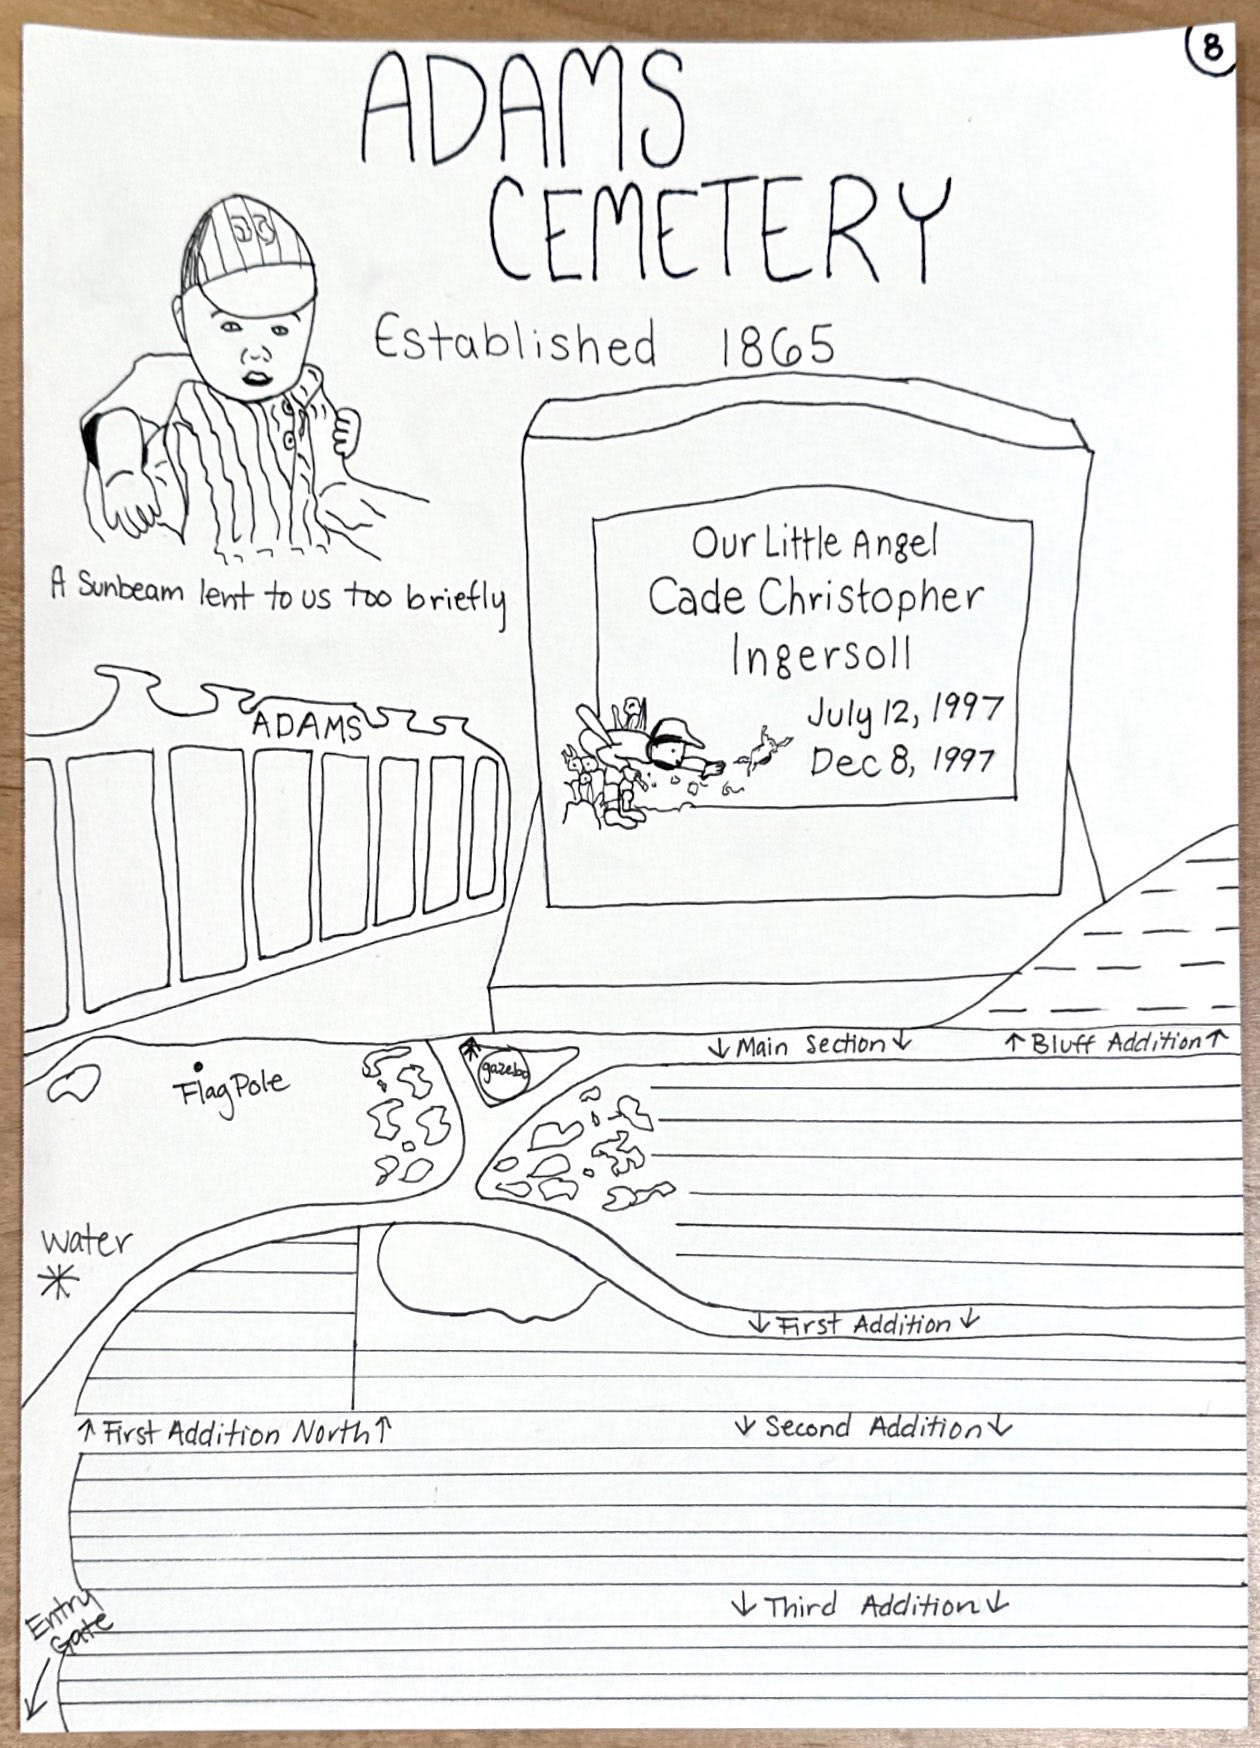 8
ADAMS
CEMETERY
Established 1865
Our Little Angel
Cade Christopher
Ingersoll
July 12, 1997
Dec 8, 1997
A Sunbeam lent to us too briefly
ADAMS
↓ Main Section ↓
↑ Bluff Addition ↑
gazebo
Flag Pole
Water
↓ First Addition ↓
↑ First Addition North ↑
↓ Second Addition ↓
Entry
Gate
↓ Third Addition ↓